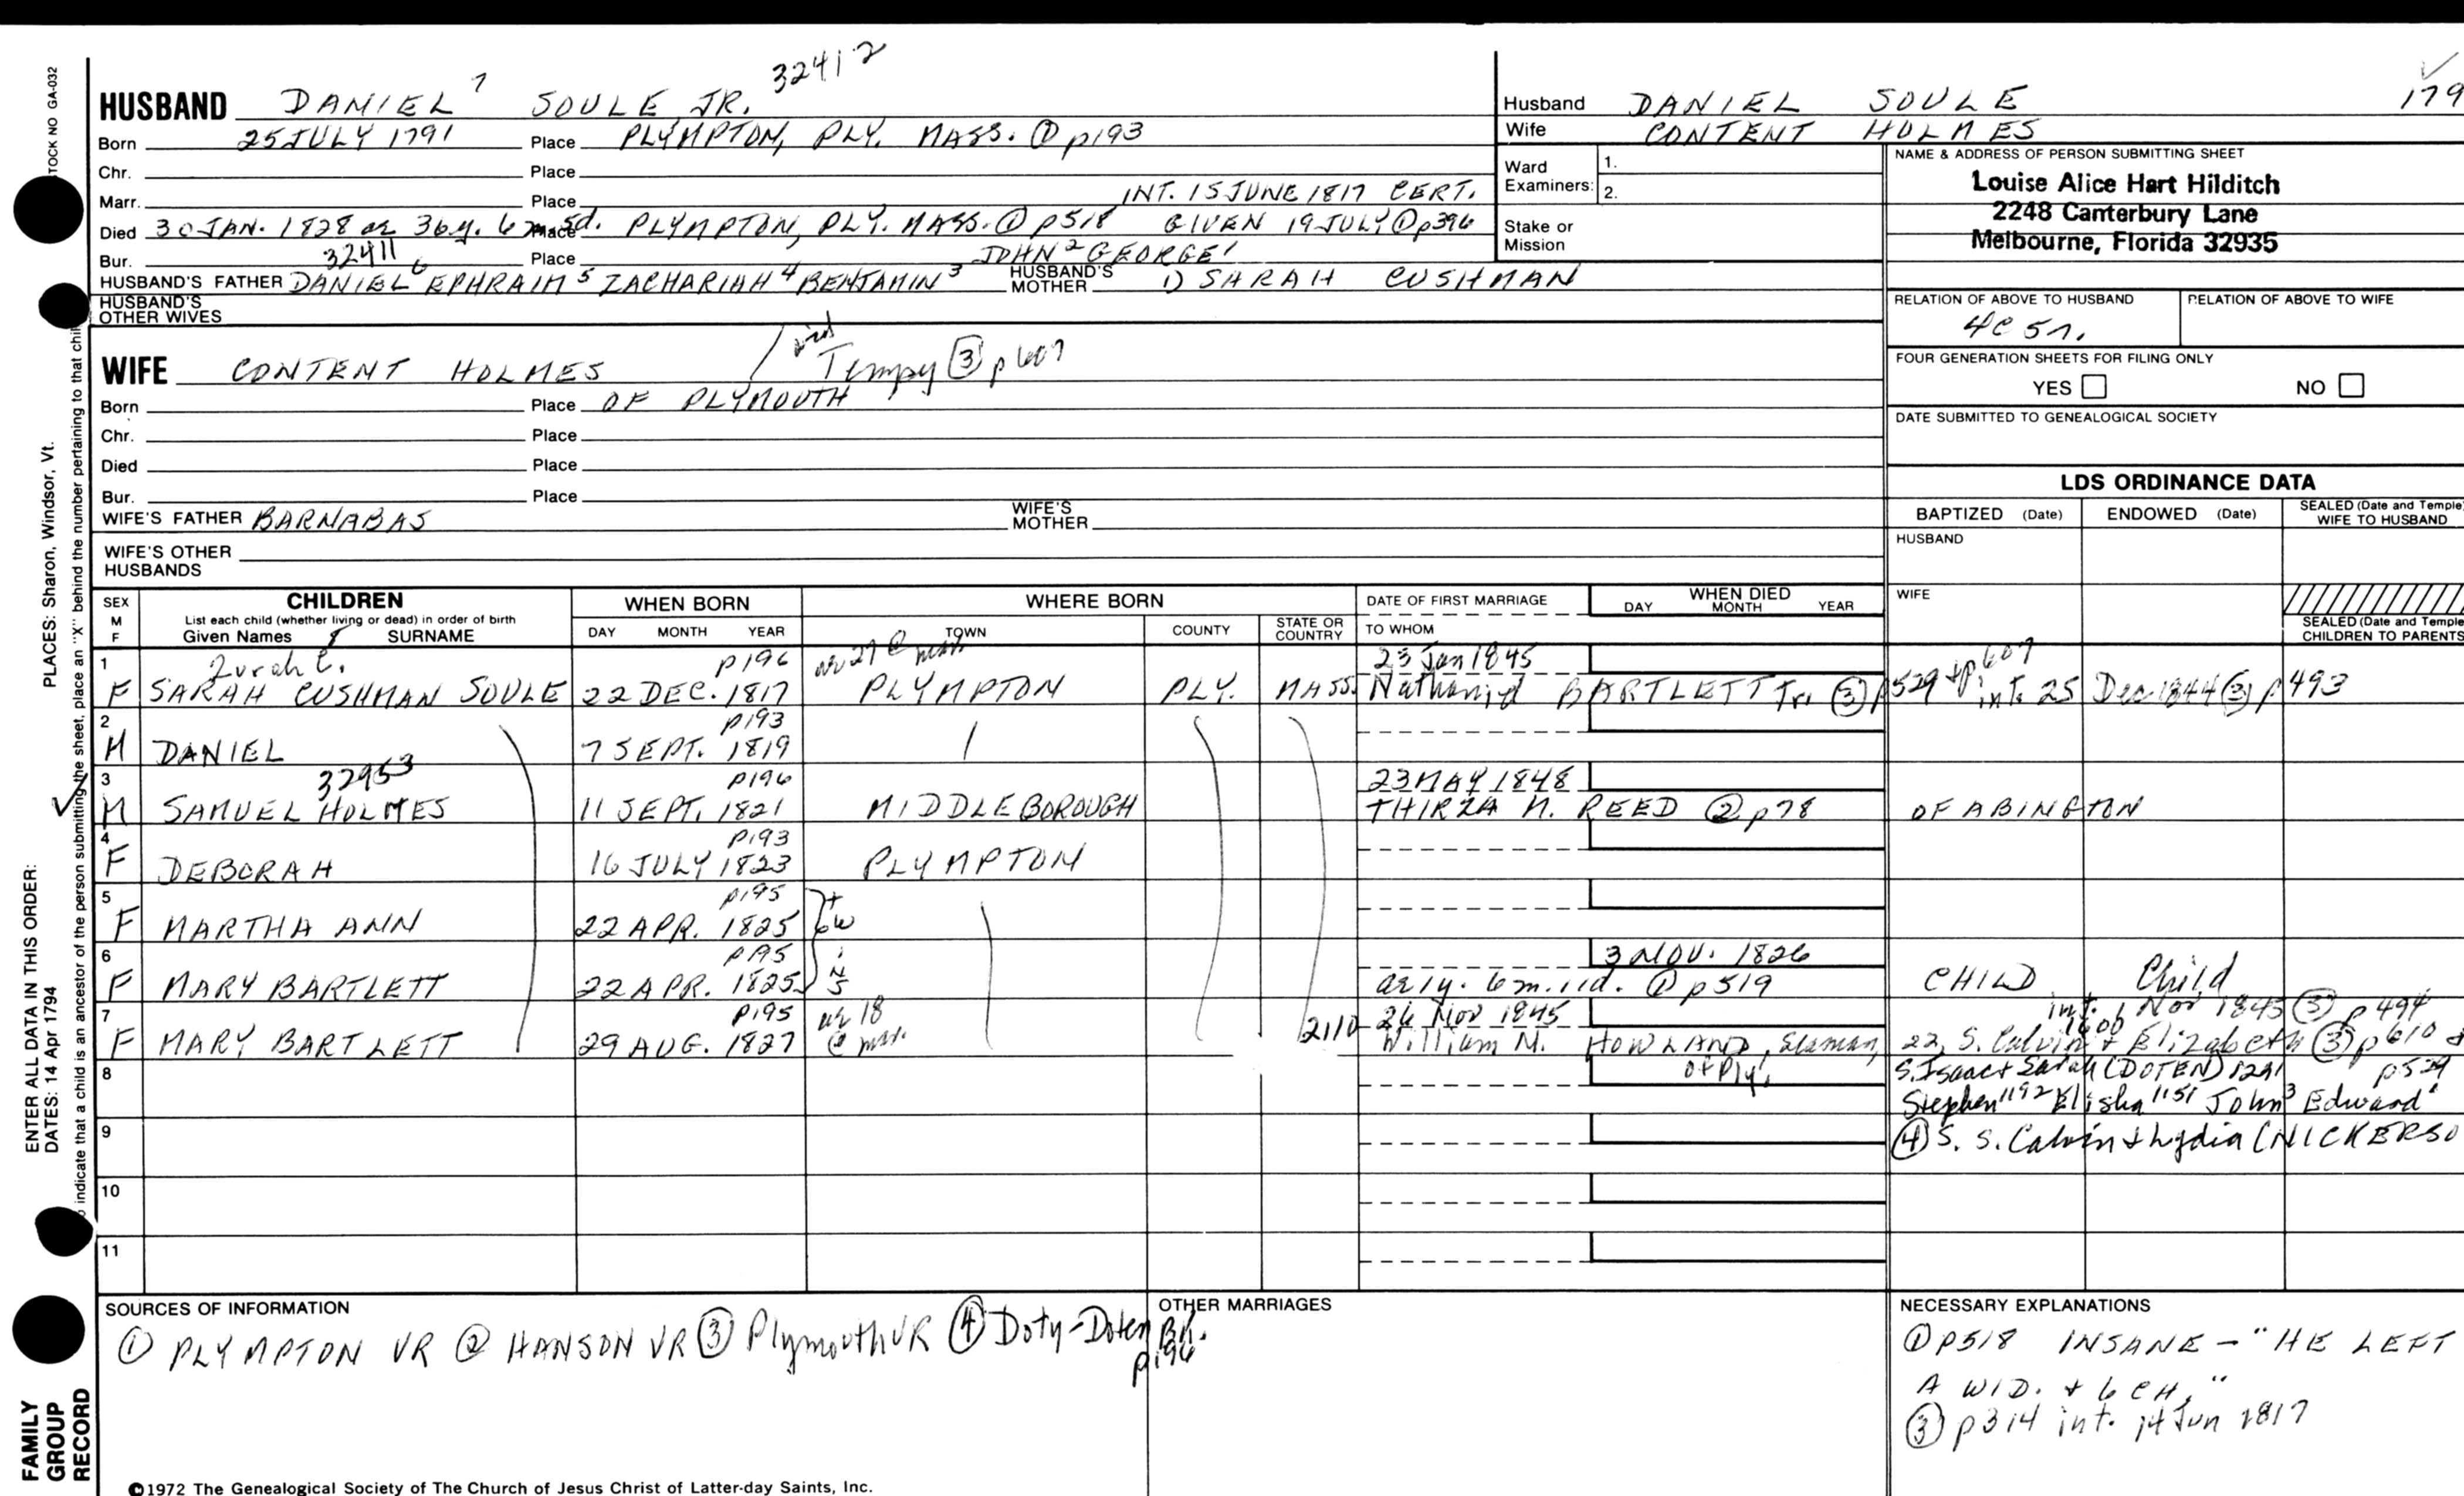 32412
HUSBAND DANIEL 7 SOULE JR.
Born 25 JULY 1791 Place PLYMPTON, PLY. MASS. ① p193
Chr. Place
Marr. Place INT. 15 JUNE 1817 CERT.
Died 30 JAN. 1828 ae 36y. 6m. 5d. Place PLYMPTON, PLY. MASS. ① p518 GIVEN 19 JULY ① p396
Bur. 32411 Place JOHN 2 GEORGE 1
HUSBAND'S FATHER DANIEL 6 EPHRAIM 5 ZACHARIAH 4 BENJAMIN 3 HUSBAND'S MOTHER 1) SARAH CUSHMAN
HUSBAND'S OTHER WIVES
WIFE CONTENT HOLMES Tempy ③ p607
Born Place OF PLYMOUTH
Chr. Place
Died Place
Bur. Place
WIFE'S FATHER BARNABAS WIFE'S MOTHER
WIFE'S OTHER HUSBANDS
Husband DANIEL SOULE 179
Wife CONTENT HOLMES
Ward Examiners: 1.
2.
Stake or Mission
NAME & ADDRESS OF PERSON SUBMITTING SHEET
Louise Alice Hart Hilditch
2248 Canterbury Lane
Melbourne, Florida 32935
RELATION OF ABOVE TO HUSBAND RELATION OF ABOVE TO WIFE
4C 5r.
FOUR GENERATION SHEETS FOR FILING ONLY
YES NO
DATE SUBMITTED TO GENEALOGICAL SOCIETY
LDS ORDINANCE DATA
BAPTIZED (Date) ENDOWED (Date) SEALED (Date and Temple) WIFE TO HUSBAND
HUSBAND
WIFE
SEALED (Date and Temple) CHILDREN TO PARENTS
SEX M F
CHILDREN
List each child (whether living or dead) in order of birth
Given Names SURNAME
WHEN BORN
DAY MONTH YEAR
WHERE BORN
TOWN COUNTY STATE OR COUNTRY
DATE OF FIRST MARRIAGE
TO WHOM
WHEN DIED
DAY MONTH YEAR
1 Zurah C. p196 ae 27 @ mar. 23 Jan 1845
F SARAH CUSHMAN SOULE 22 DEC. 1817 PLYMPTON PLY. MASS. Nathaniel BARTLETT Jr. ③ p529 + p607 int. 25 Dec 1844 ③ p493
2 p193
M DANIEL 7 SEPT. 1819
3 32953 p196 23 MAY 1848
M SAMUEL HOLMES 11 SEPT. 1821 MIDDLEBOROUGH THIRZA N. REED ② p78 OF ABINGTON
4 p193
F DEBORAH 16 JULY 1823 PLYMPTON
5 p195
F MARTHA ANN 22 APR. 1825
6 p195 3 NOV. 1826
F MARY BARTLETT 22 APR. 1825 ae 1y. 6m. 11d. ① p519 CHILD Child
7 p195 ae 18 26 Nov 1845 int. 6 Nov 1845 ③ p494
F MARY BARTLETT 29 AUG. 1827 @ mar. 2110 William M. HOWLAND, Seaman, 22, S. Calvin + Elizabeth ③ p610 +
8 of Ply. S. Isaac + Sarah (DOTEN) 1291 p529
Stephen 1192 Elisha 1151 John 3 Edward 1
9 ④ S. S. Calvin + Lydia (NICKERSO
10
11
SOURCES OF INFORMATION
① PLYMPTON VR ② HANSON VR ③ Plymouth VR ④ Doty-Doten Bk. p196
OTHER MARRIAGES
NECESSARY EXPLANATIONS
① p518 INSANE - "HE LEFT
A WID. + 6 CH."
③ p314 int. 14 Jun 1817
©1972 The Genealogical Society of The Church of Jesus Christ of Latter-day Saints, Inc.
STOCK NO GA-032
indicate that a child is an ancestor of the person submitting the sheet, place an "X" behind the number pertaining to that chil
PLACES: Sharon, Windsor, Vt.
ENTER ALL DATA IN THIS ORDER:
DATES: 14 Apr 1794
FAMILY
GROUP
RECORD